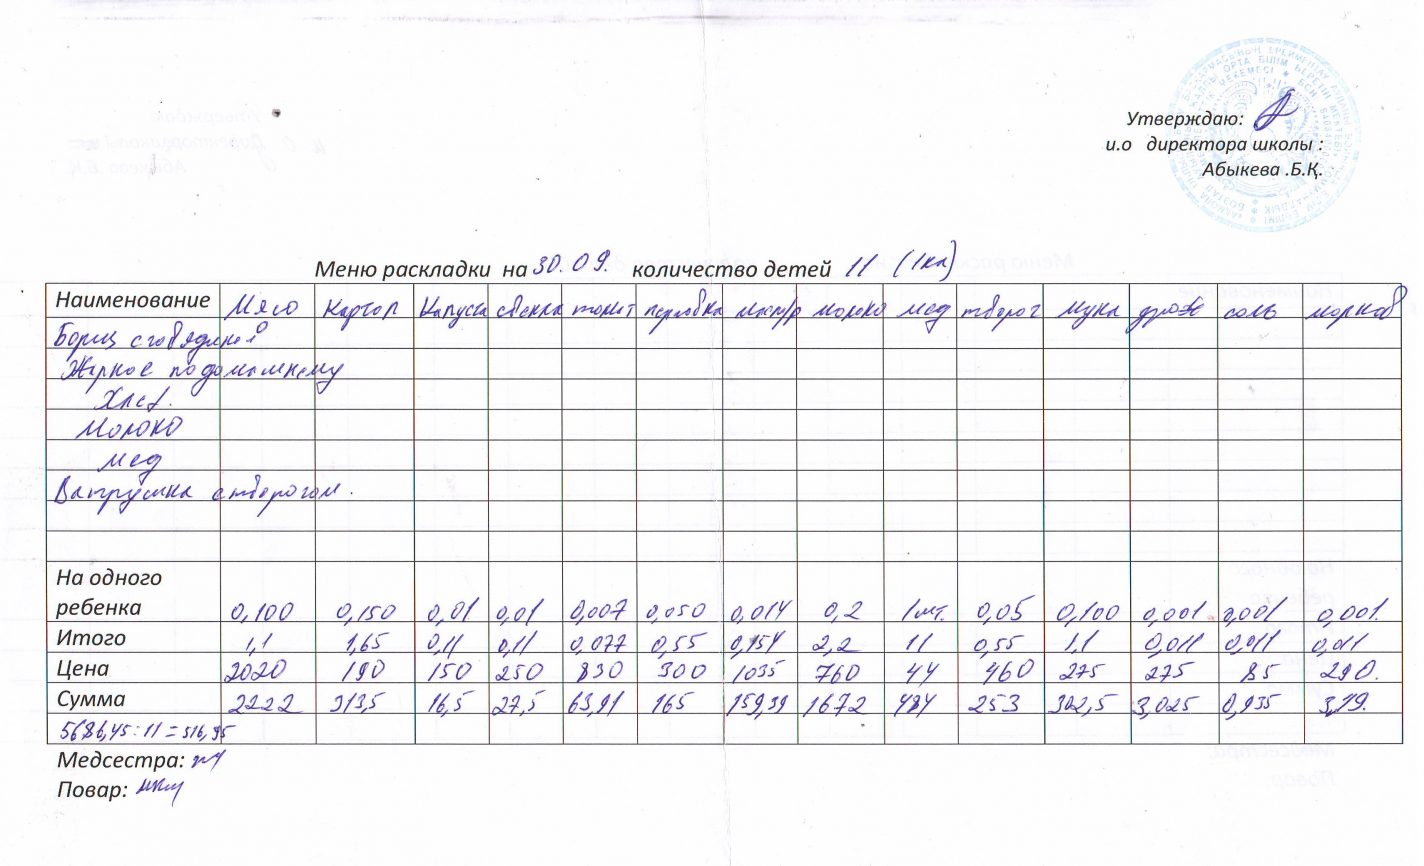 Утверждаю:
и.о директора школы :
Абыкева .Б.Қ.
Меню раскладки на 30.09. количество детей 11 (1кл)
Наименование Мясо Картоп Капуста свекла томат перловка масл/р молоко мед творог мука дрож соль морков
Борщ с говядиной
Жаркое по домашнему
Хлеб.
Молоко
мед
Ватрушка с творогом.
На одного
ребенка 0,100 0,150 0,01 0,01 0,007 0,050 0,014 0,2 1шт. 0,05 0,100 0,001 0,001 0,001.
Итого 1,1 1,65 0,11 0,11 0,077 0,55 0,154 2,2 11 0,55 1,1 0,011 0,011 0,011
Цена 2020 190 150 250 830 300 1035 760 44 460 275 275 85 290.
Сумма 2222 313,5 16,5 27,5 63,91 165 159,39 1672 484 253 302,5 3,025 0,935 3,19.
5686,45:11=516,95
Медсестра:
Повар: